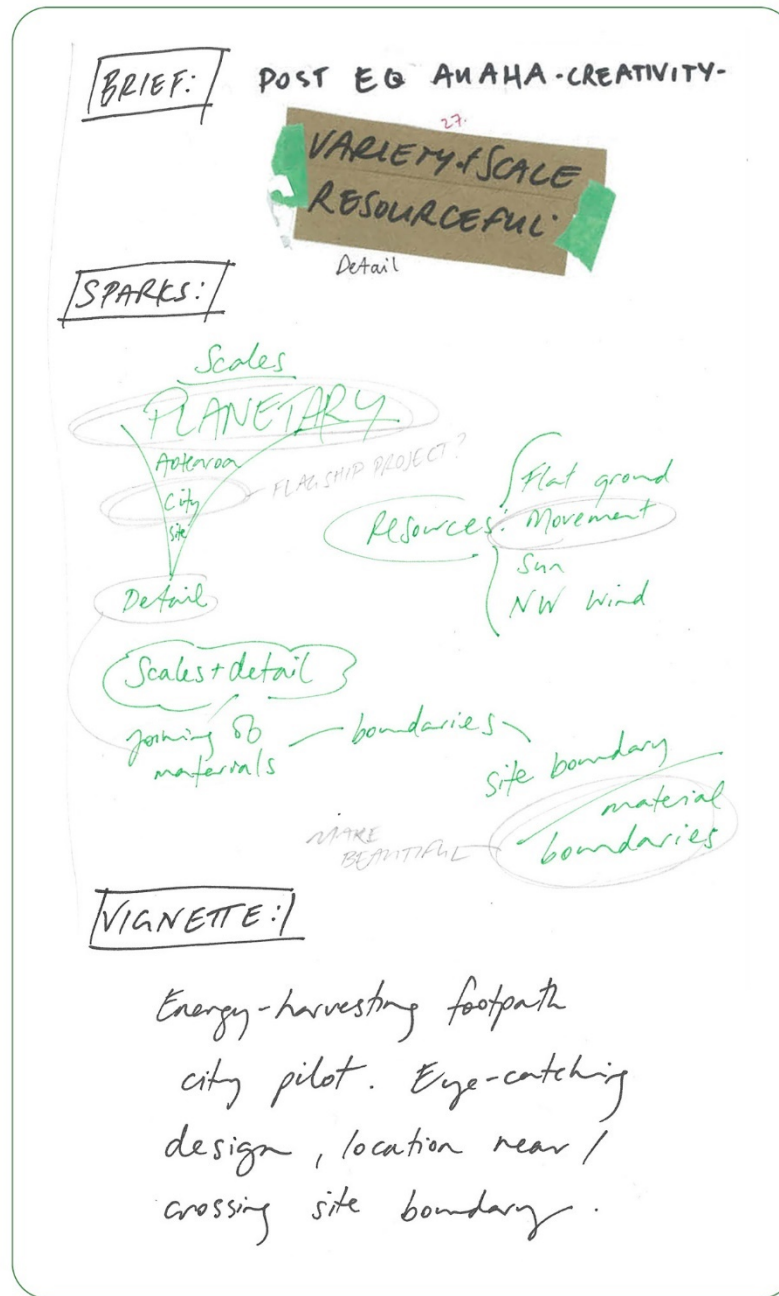 BRIEF:
POST EQ AUAHA-CREATIVITY-
27.
VARIETY of SCALE
RESOURCEFUL.
Detail
SPARKS:
Scales
PLANETARY
Aotearoa
City
site
Detail
FLAGSHIP PROJECT?
Resources:
Flat ground
Movement
Sun
NW Wind
Scales + detail
joining of
materials
boundaries
site boundary
material
boundaries
MAKE
BEAUTIFUL
VIGNETTE:
Energy-harvesting footpath
city pilot. Eye-catching
design, location near /
crossing site boundary.